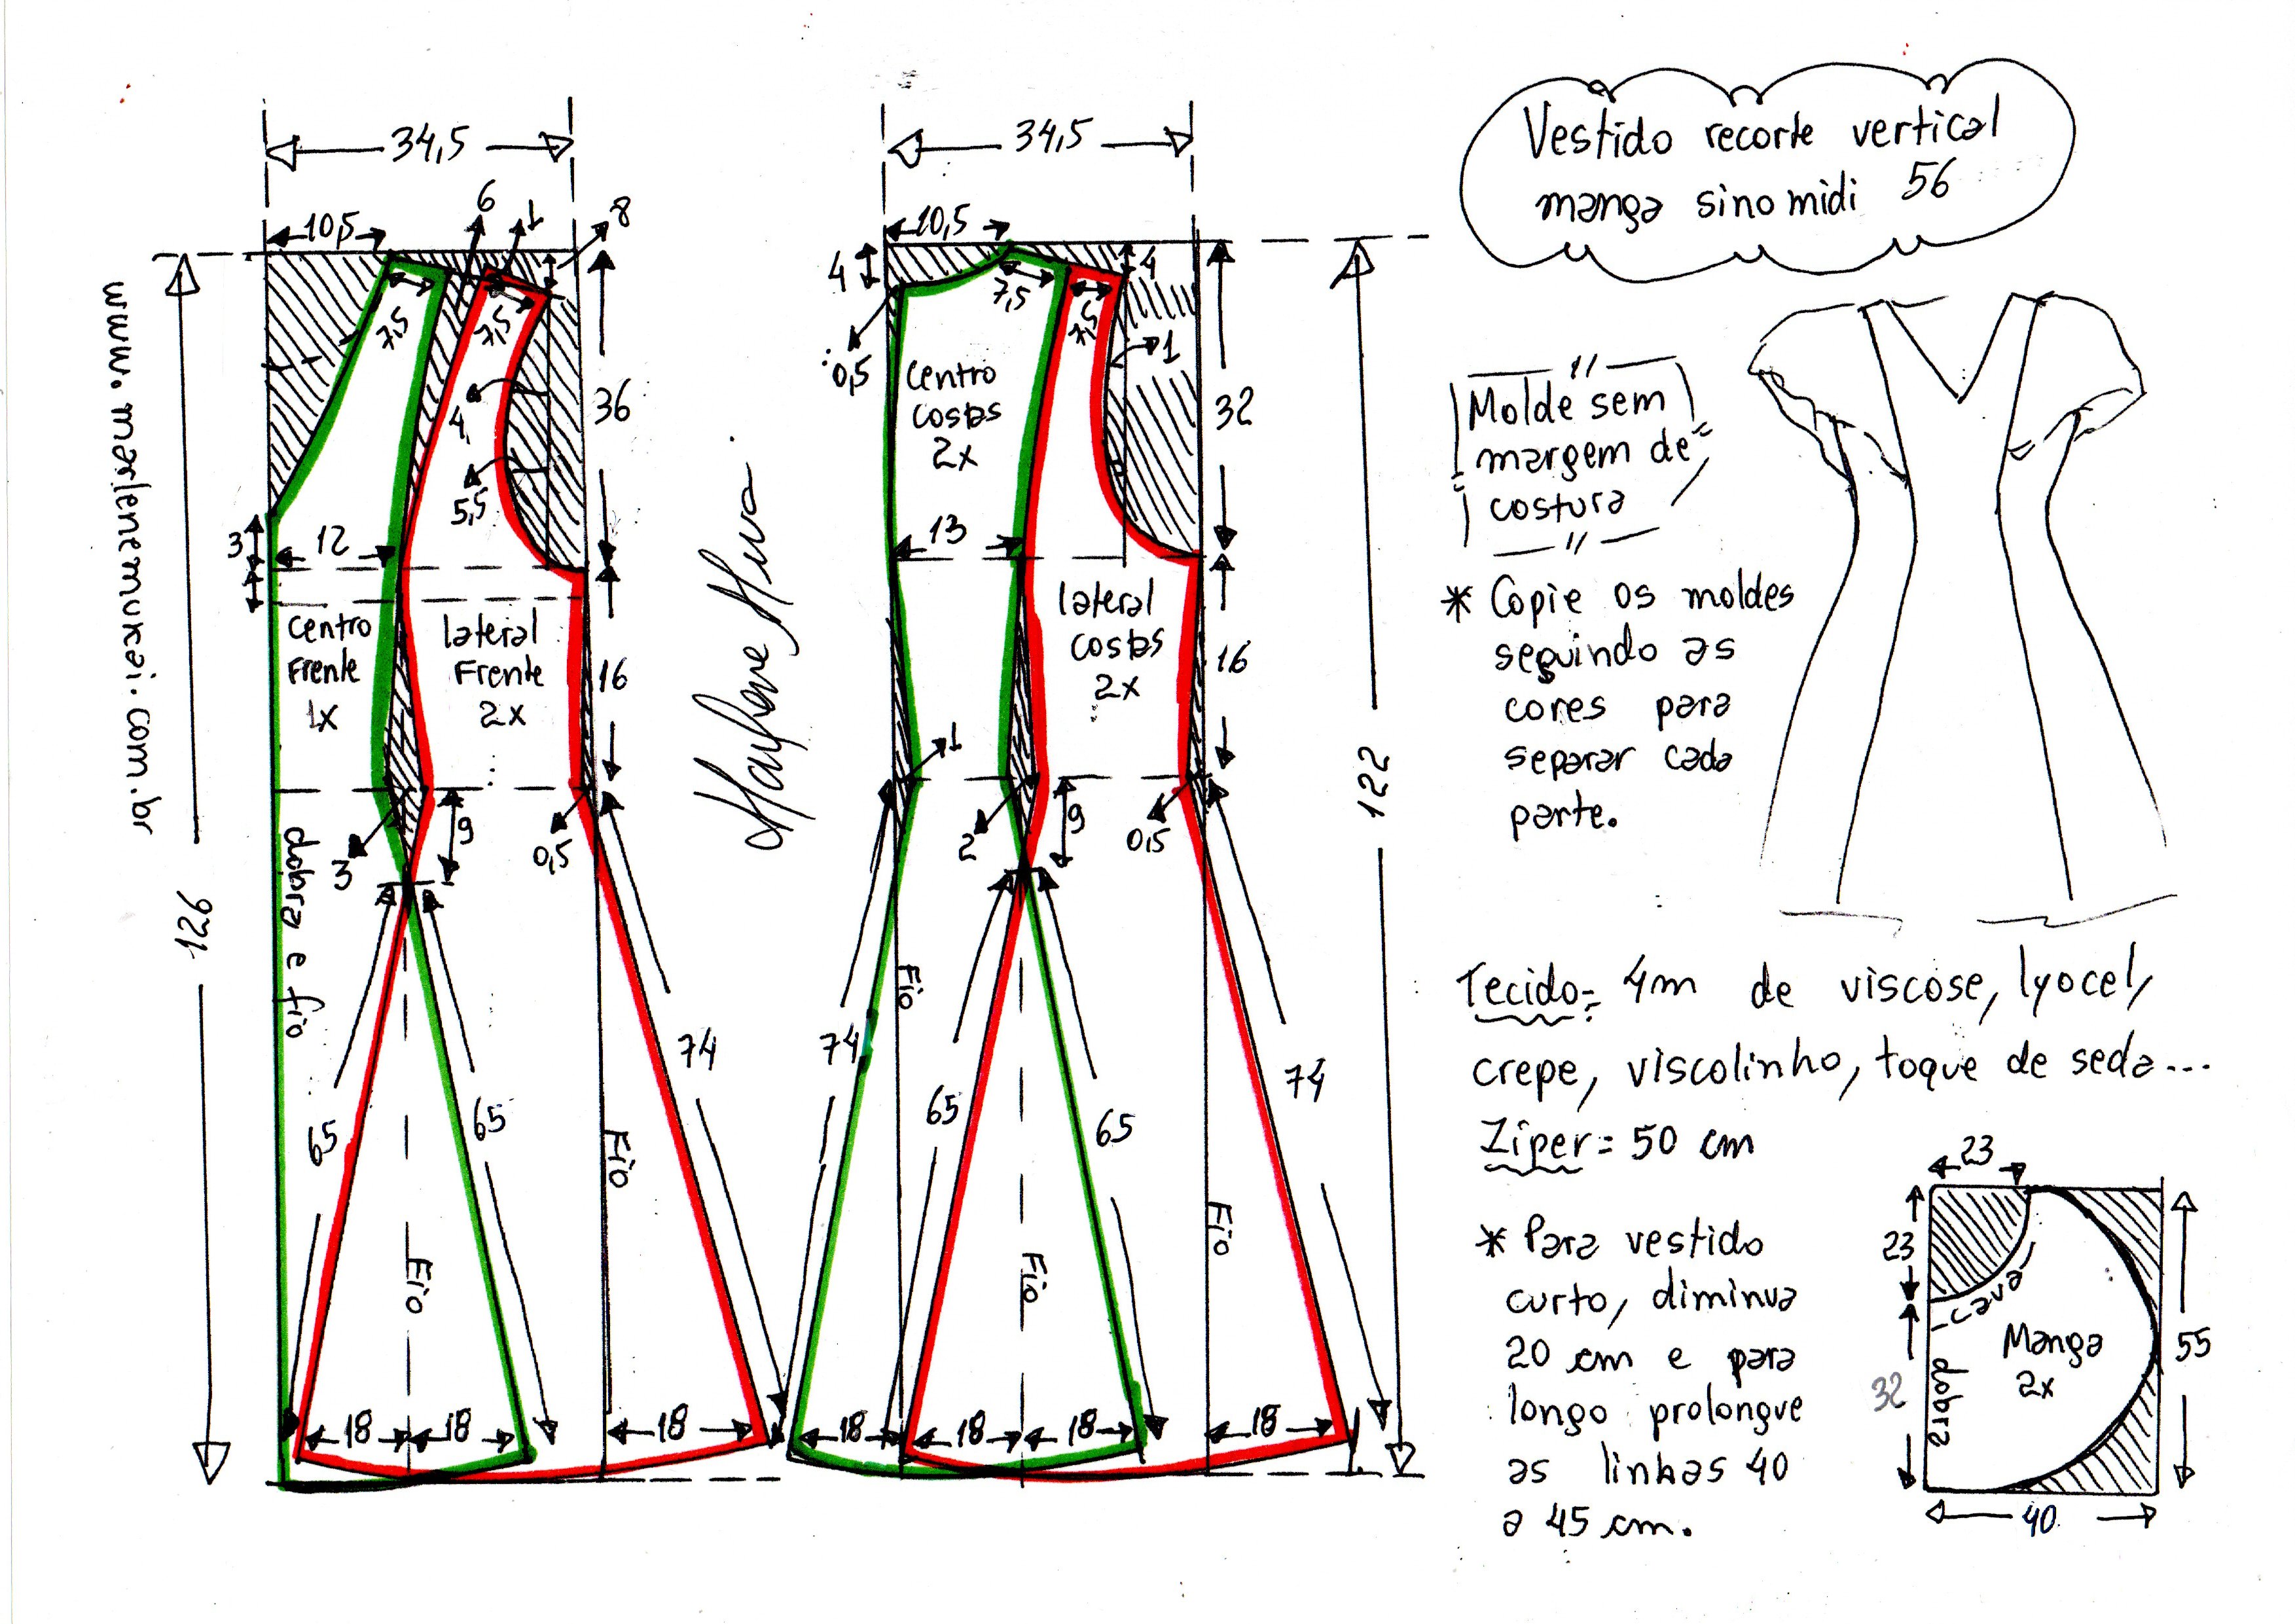 Vestido recorte vertical
manga sino midi 56
34,5
34,5
10,5
6
1
8
7,5
7,5
36
4
5,5
3
12
Centro
Frente
1x
lateral
Frente
2x
16
3
9
0,5
dobra e fio
126
65
65
74
Fio
Fio
18
18
18
www.marlenemukai.com.br
10,5
4
4
0,5
7,5
7,5
1
Centro
costas
2x
32
13
lateral
costas
2x
16
1
2
9
0,5
122
Fio
74
65
65
74
Fio
Fio
18
18
18
18
Molde sem
margem de
costura
* Copie os moldes
seguindo as
cores para
separar cada
parte.
Tecido= 4m de viscose, lyocel,
crepe, viscolinho, toque de seda...
Ziper= 50 cm
* Para vestido
curto, diminua
20 cm e para
longo prolongue
as linhas 40
a 45 cm.
23
23
cava
Manga
2x
55
32
dobra
40